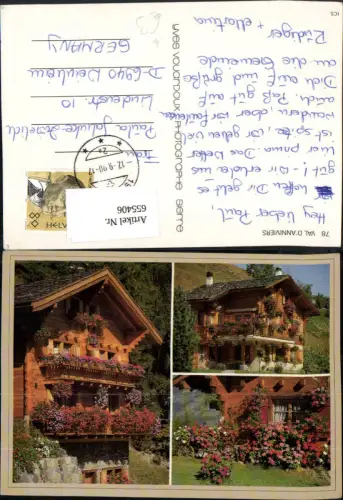 78 VAL D'ANNIVIERS
Hey lieber Paul,
hoffen Dir geht es
gut! Wir erholen uns
hier prima. Das Wetter
ist spitze, wir gehen viel
wandern, aber wir faulenzen
auch. Paß gut auf
Dich auf und grüße
an die Gemeinde
Rüdiger
+ Martina
YVES VOUARDOUX PHOTOGRAPHE SIERRE
Frau
Paula
Lindenstr. 10
D-6940 Weinheim
GERMANY
HELVETIA
Artikel Nr.
655406
ICS